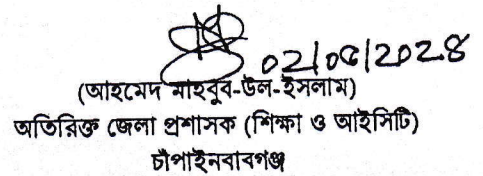 ০২/০৫/২০২৪
(আহমেদ মাহবুব-উল-ইসলাম)
অতিরিক্ত জেলা প্রশাসক (শিক্ষা ও আইসিটি)
চাঁপাইনবাবগঞ্জ